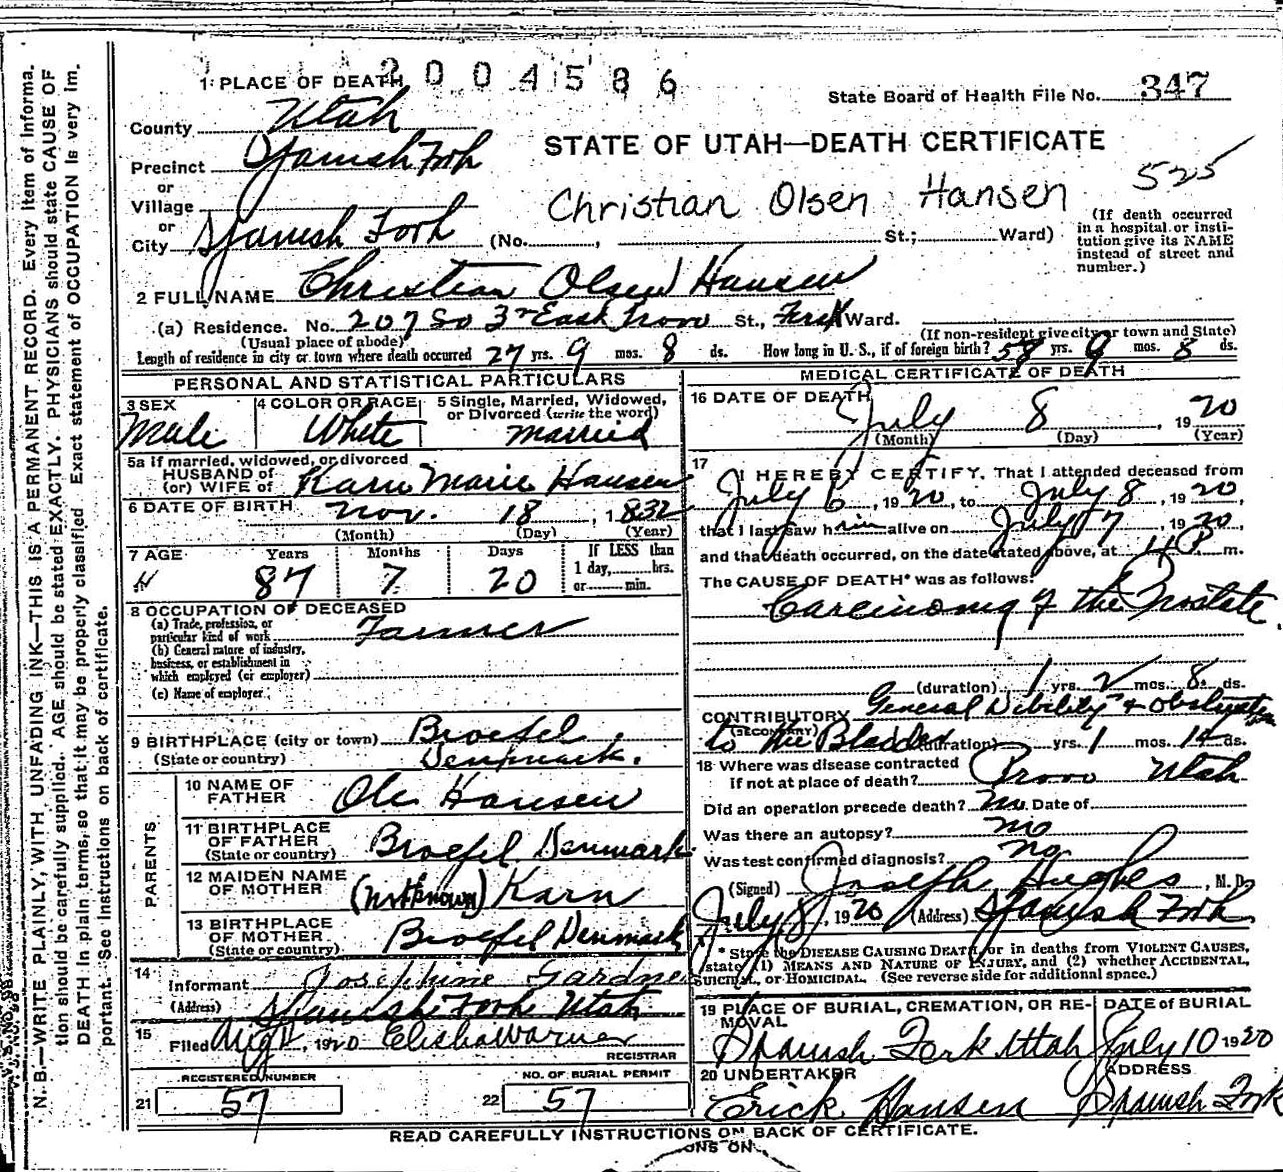 2004586
1 PLACE OF DEATH
State Board of Health File No. 347
County Utah
STATE OF UTAH—DEATH CERTIFICATE
Precinct Spanish Fork
or
Village
Christian Olsen Hansen 525
or
City Spanish Fork (No. , St.; Ward)
(If death occurred
in a hospital or insti-
tution give its NAME
instead of street and
number.)
2 FULL NAME Christian Olsen Hansen
(a) Residence. No. 207 So 3rd East Provo St., First Ward.
(Usual place of abode) (If non-resident give city or town and State)
Length of residence in city or town where death occurred 27 yrs. 9 mos. 8 ds. How long in U. S., if of foreign birth? 58 yrs. 9 mos. 8 ds.
PERSONAL AND STATISTICAL PARTICULARS
3 SEX
Male
4 COLOR OR RACE
White
5 Single, Married, Widowed,
or Divorced (write the word)
Married
5a If married, widowed, or divorced
HUSBAND of
(or) WIFE of Karn Marie Hansen
6 DATE OF BIRTH Nov. 18, 1832
(Month) (Day) (Year)
7 AGE Years Months Days If LESS than
87 7 20 1 day, hrs.
or min.
8 OCCUPATION OF DECEASED
(a) Trade, profession, or
particular kind of work Farmer
(b) General nature of industry,
business, or establishment in
which employed (or employer)
(c) Name of employer
9 BIRTHPLACE (city or town) Broefel
(State or country) Denmark.
PARENTS
10 NAME OF
FATHER Ole Hansen
11 BIRTHPLACE
OF FATHER
(State or country) Broefel Denmark
12 MAIDEN NAME
OF MOTHER (not known) Karn
13 BIRTHPLACE
OF MOTHER
(State or country) Broefel Denmark
14
Informant Josephine Gardner
(Address) Spanish Fork Utah
15
Filed Aug 11, 1920 Elisha Warner
REGISTRAR
REGISTERED NUMBER
21 57
NO. OF BURIAL PERMIT
22 57
MEDICAL CERTIFICATE OF DEATH
16 DATE OF DEATH
July 8, 1920
(Month) (Day) (Year)
17
I HEREBY CERTIFY, That I attended deceased from
July 6, 1920, to July 8, 1920,
that I last saw him alive on July 7, 1920
and that death occurred, on the date stated above, at 4 P. m.
The CAUSE OF DEATH* was as follows:
Carcinoma of the Prostate.
(duration) 1 yrs. 2 mos. 8 ds.
CONTRIBUTORY General Debility & Obstruction
(SECONDARY)
to the Bladder (duration) yrs. 1 mos. 14 ds.
18 Where was disease contracted
If not at place of death? Provo Utah
Did an operation precede death? No Date of
Was there an autopsy? No
Was test confirmed diagnosis? No
(Signed) Joseph Hughes, M. D.
July 8, 1920 (Address) Spanish Fork
* State the DISEASE CAUSING DEATH, or in deaths from VIOLENT CAUSES,
state (1) MEANS AND NATURE OF INJURY, and (2) whether ACCIDENTAL,
SUICIDAL, or HOMICIDAL. (See reverse side for additional space.)
19 PLACE OF BURIAL, CREMATION, OR RE-
MOVAL
Spanish Fork Utah
DATE of BURIAL
July 10 1920
20 UNDERTAKER
Erick Hansen
ADDRESS
Spanish Fork
READ CAREFULLY INSTRUCTIONS ON BACK OF CERTIFICATE.
ONS ON
N. B—WRITE PLAINLY, WITH UNFADING INK—THIS IS A PERMANENT RECORD. Every item of informa-
tion should be carefully supplied. AGE should be stated EXACTLY. PHYSICIANS should state CAUSE OF
DEATH in plain terms, so that it may be properly classified. Exact statement of OCCUPATION is very im-
portant. See Instructions on back of certificate.